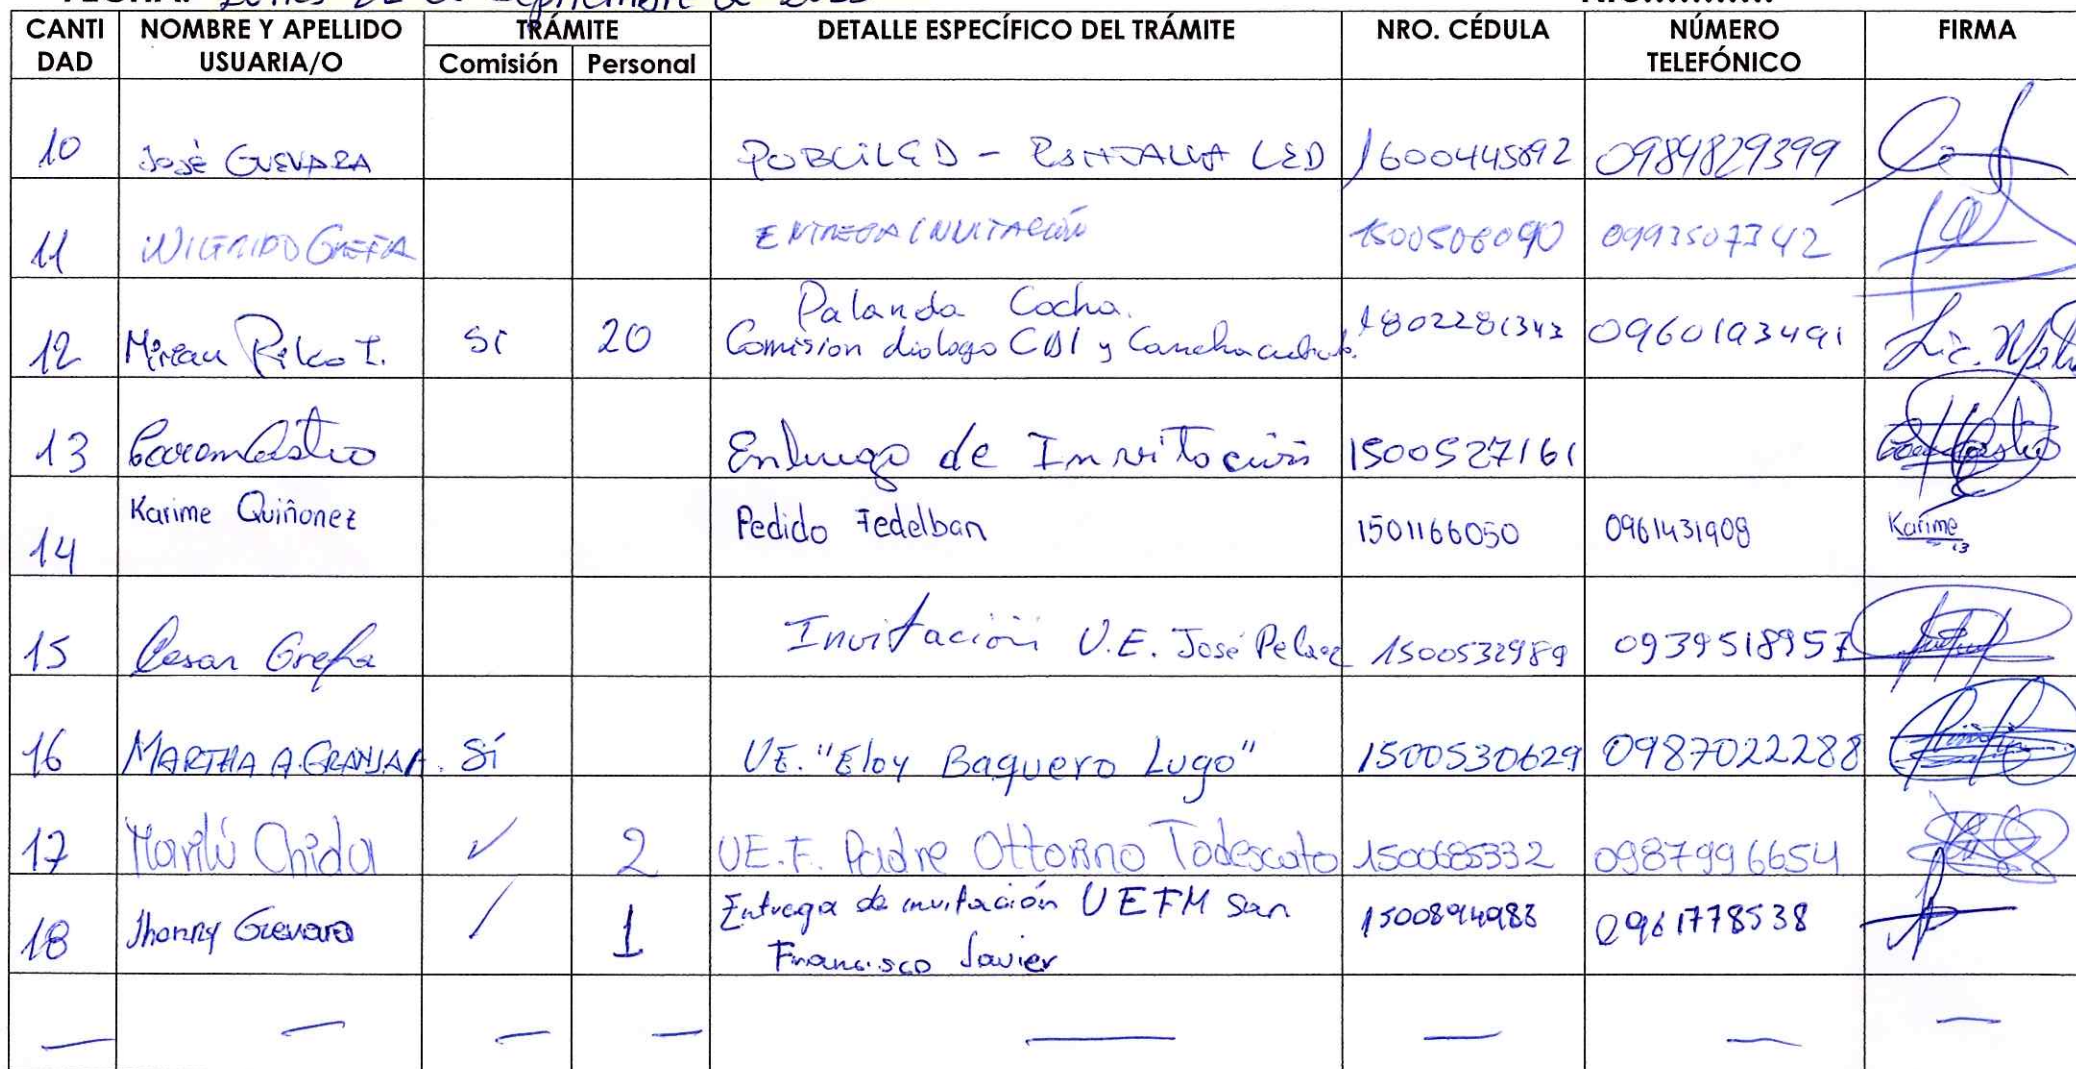 CANTI DAD NOMBRE Y APELLIDO USUARIA/O TRÁMITE Comisión Personal DETALLE ESPECÍFICO DEL TRÁMITE NRO. CÉDULA NÚMERO TELEFÓNICO FIRMA
10 José GUEVARA PUBLILED - PANTALLA LED 1600445892 0984829399
11 WILFRIDO GREFA ENTREGA INVITACIÓN 1500506090 0993507342
12 Pilco T. Si 20 Palanda Cocha.
Comision dialogo CDI y Cancha 1802281343 0960193491 Lic.
13 Castro de Invitación 1500527161
14 Karime Quiñonez Pedido Fedelban 1501166050 0961431908 Karime
15 Cesar Grefa Invitación U.E. José Pelaez 1500532989 0939518957
16 MARTHA A. GRANJA A. Sí UE. "Eloy Baquero Lugo" 1500530629 0987022288
17 Marilú Chida ✓ 2 UE.F. Padre Ottorino Todescato 1500685332 0987996654
18 Jhonny Guevara / 1 Entrega de invitación UEFM San
Francisco Javier 1500894983 0961778538
— — — — — — — —